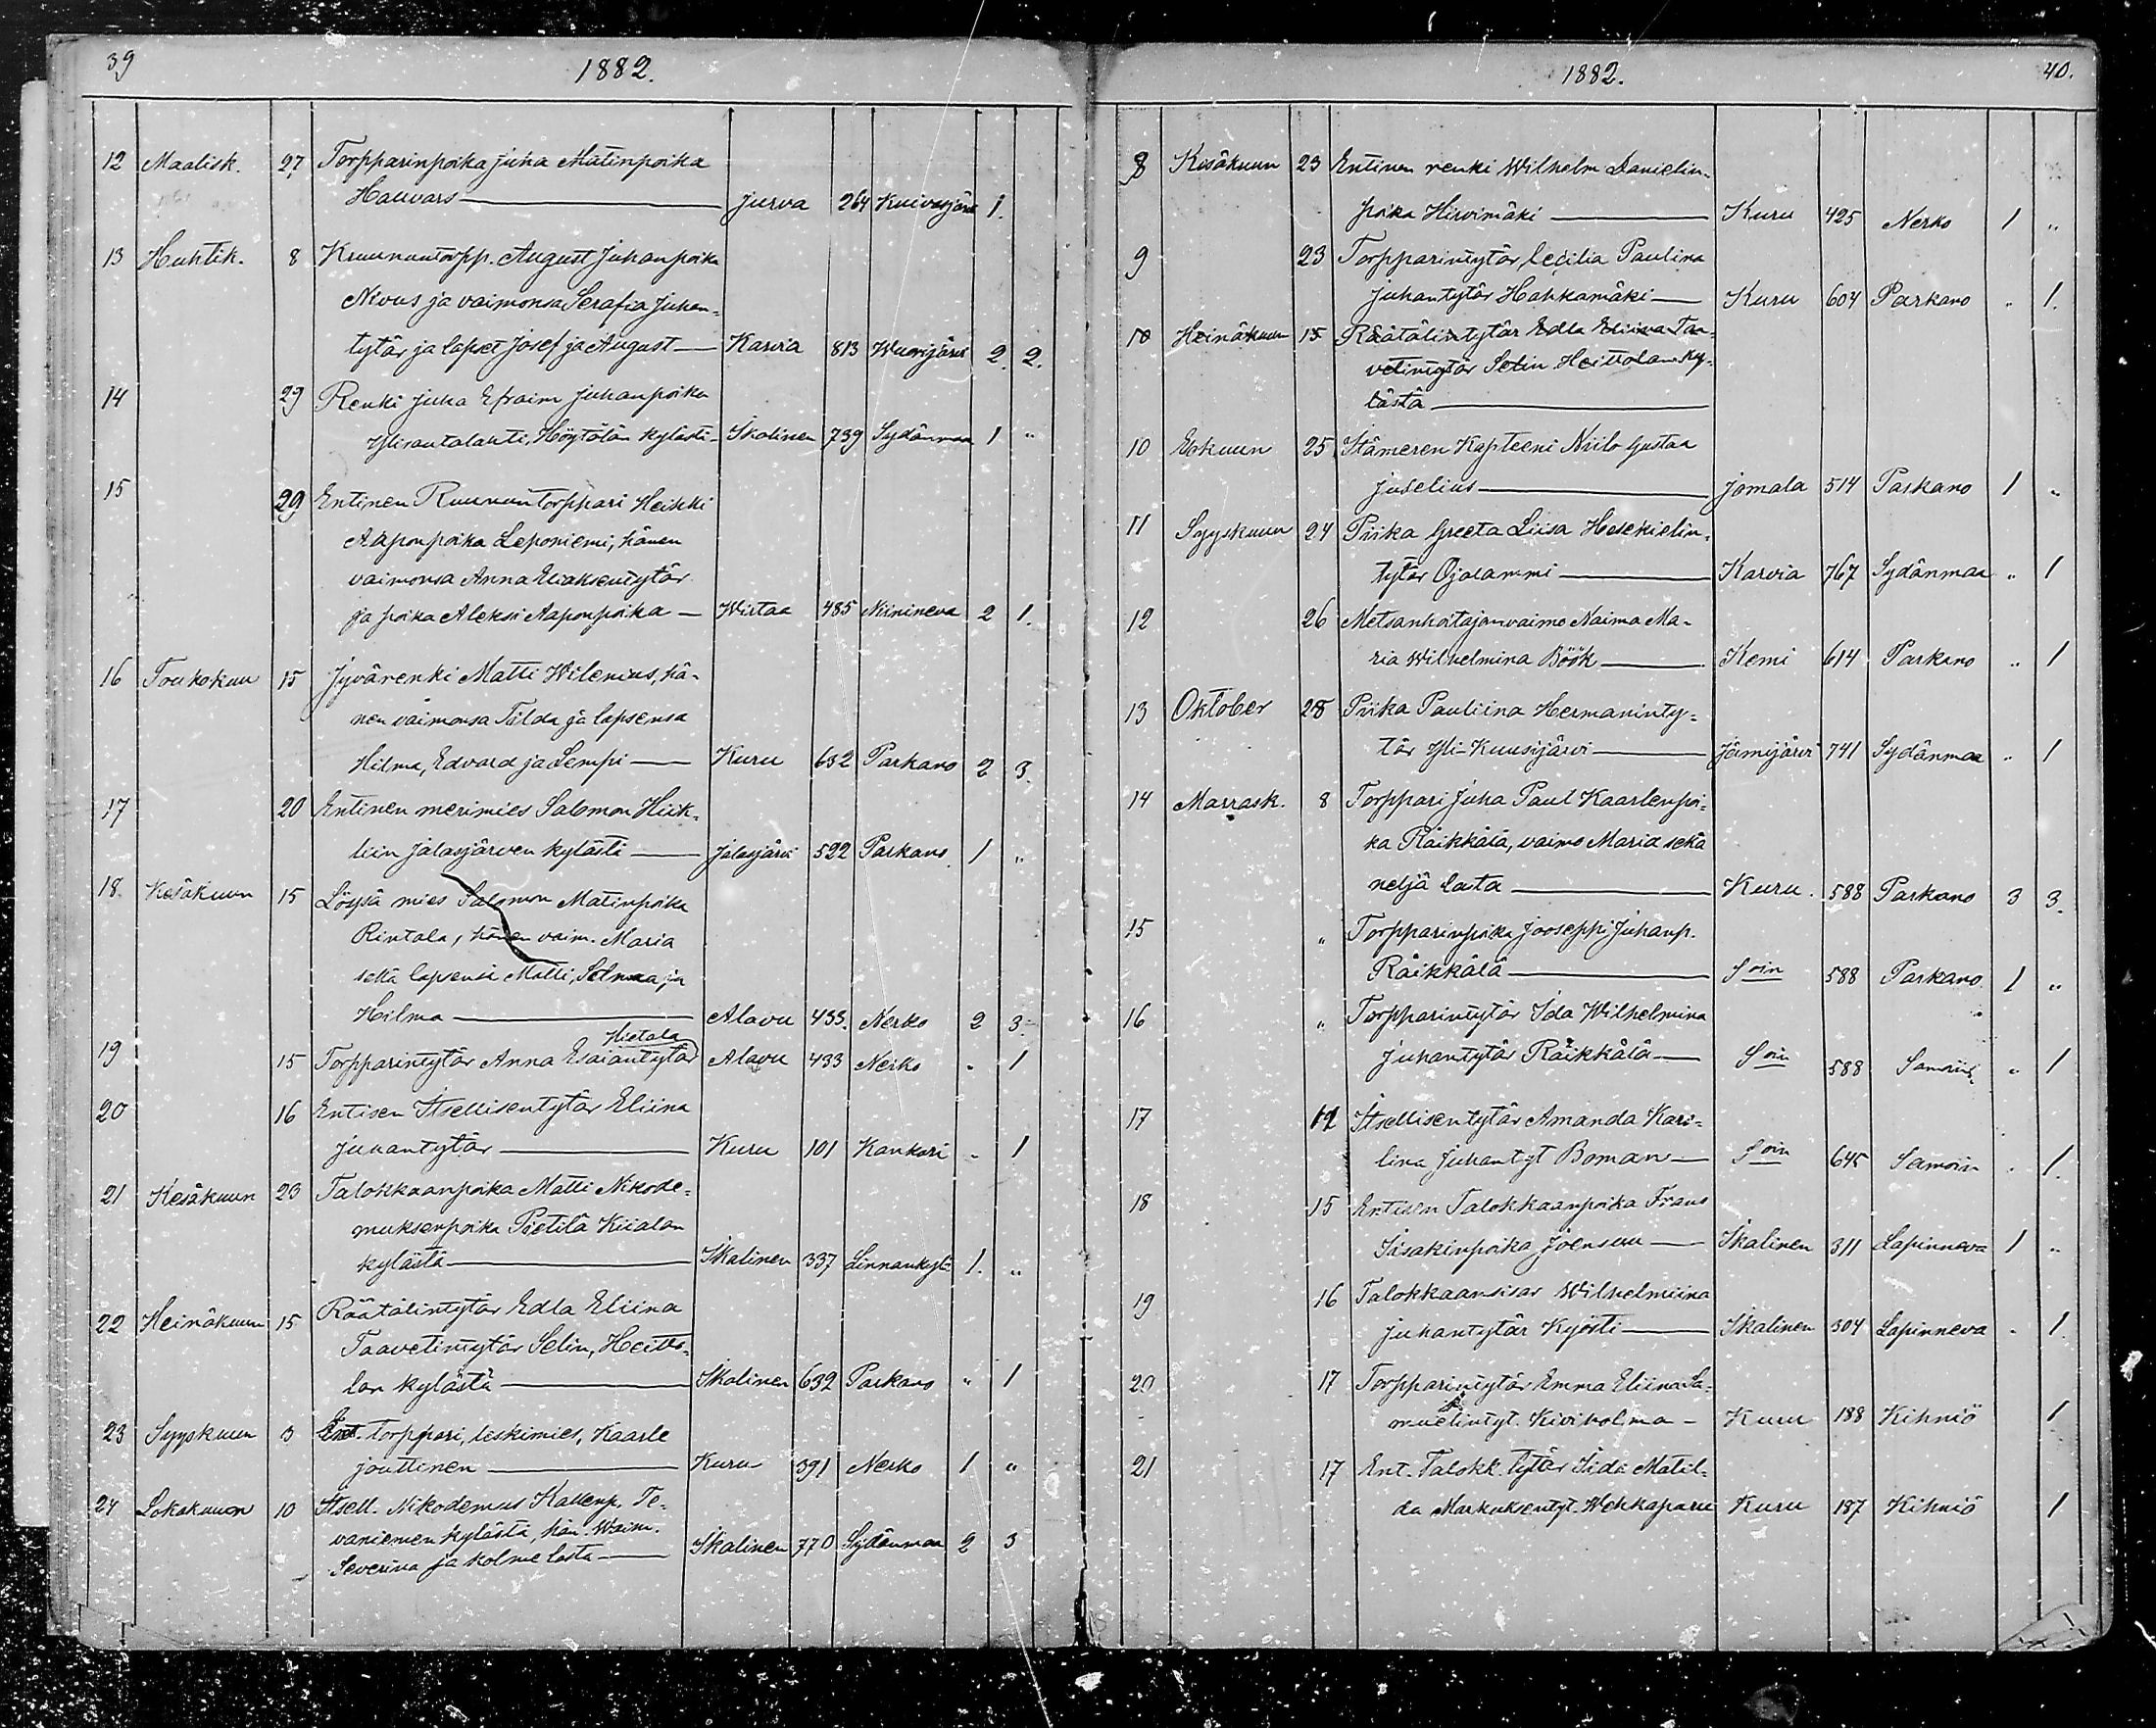 39
1882.
12 Maalisk. 27 Torpparinpoika Juha Matinpoika
Hauvars — Jurva 264 Kuivasjärvi 1.
13 Huhtik. 8 Kruununtorpp. August Juhanpoika
Nivus ja vaimonsa Serafia Juhan-
tytär ja lapset Josef ja August — Karvia 813 Wuorijärvi 2. 2.
14 29 Renki Juha Efraim Juhanpoika
Ylisantalahti, Höytölän kylästi — Ikalinen 739 Sydänmaa 1 "
15 29 Entinen Ruununtorppari Heikki
Aaponpoika Leponiemi, hänen
vaimonsa Anna Eliaksentytär
ja poika Aleksi Aaponpoika — Wirtaa 485 Niinineva 2 1.
16 Toukokuu 15 Jyvärenki Matti Wilenius, hä-
nen vaimonsa Tilda ja lapsensa
Hilma, Edvard ja Lempi — Kuru 632 Parkano 2 3.
17 20 Entinen merimies Salomon Hiik-
liin Jalasjärven kylästi — Jalasjärvi 522 Parkano 1 "
18. Kesäkuun 15 Löysä mies Salomon Matinpoika
Rintala, hänen vaim. Maria
sekä lapsensi Matti, Selma ja
Hilma — Alavu 433. Nerko 2 3.
Hietala
19 15 Torpparintytär Anna Esaiantytär Alavu 433 Nerko " 1
20 16 Entisen Itsellisentytär Eliina
Juhantytär — Kuru 101 Kankari " 1
21 Kesäkuun 23 Talokkaanpoika Matti Nikode-
muksenpoika Pietilä Kiialan
kylästä — Ikalinen 337 Linnankylä 1. "
22 Heinäkuun 15 Räätälintytär Edla Eliina
Taavetintytär Selin, Heitto-
lan kylästä — Ikalinen 632 Parkano " 1
23 Syyskuun 3 Ent. torppari, leskimies, Kaarle
Jouttinen — Kuru 391 Nerko 1 "
24 Lokakuun 10 Itsell. Nikodemus Kallenp. Te-
vaniemen kylästä, hän. Waim.
Severina ja kolme lasta — Ikalinen 770 Sydänmaa 2 3
1882.
40.
8 Kesäkuun 23 Entinen renki Wilhelm Danielin-
poika Hirvimäki — Kuru 425 Nerko 1 "
9 23 Torpparintytär, Cecilia Paulina
Juhantytär Hahkamäki — Kuru 604 Parkano " 1.
10 Heinäkuun 15 Räätälintytär Edla Eliina Taa-
vetintytär Selin Heittolan ky-
lästä —
10 Elokuun 25 Itämeren Kapteeni Niilo Gustaa
Juselius — Jomala 514 Parkano 1 "
11 Syyskuun 24 Piika Greeta Liisa Hesekielin-
tytär Ojalammi — Karvia 767 Sydänmaa " 1
12 26 Metsanhoitajanvaimo Naima Ma-
ria Wilhelmina Böök — Kemi 614 Parkano " 1
13 Oktober 28 Piika Pauliina Hermaninty-
tär Yli-Kuusijärvi — Jämijärvi 741 Sydänmaa " 1
14 Marrask. 8 Torppari Juha Paul Kaarlenpoi-
ka Räikkälä, vaimo Maria sekä
neljä lasta — Kuru. 588 Parkano 3 3.
15 " Torpparinpoika Jooseppi Juhanp.
Räikkälä — Soin 588 Parkano 1 "
16 " Torpparintytär Ida Wilhelmina
Juhantytär Räikkälä — Soin 588 Samoin " 1
17 12 Itsellisentytär Amanda Karo-
lina Juhantyt Boman — Soin 645 Samoin " 1.
18 15 Entisen Talokkaanpoika Frans
Iisakinpoika Joensuu — Ikalinen 311 Lapinneva 1 "
19 16 Talokkaansisar Wilhelmiina
Juhantytär Kyösti — Ikalinen 304 Lapinneva " 1.
20 17 Torpparintytär Emma Eliina Sa-
muelintyt. Kiviholma — Kuru 188 Kihniö 1
21 17 Ent. Talokk. tytär Iida Matil-
da Markuksentyt. Wehkaparu Kuru 187 Kihniö 1